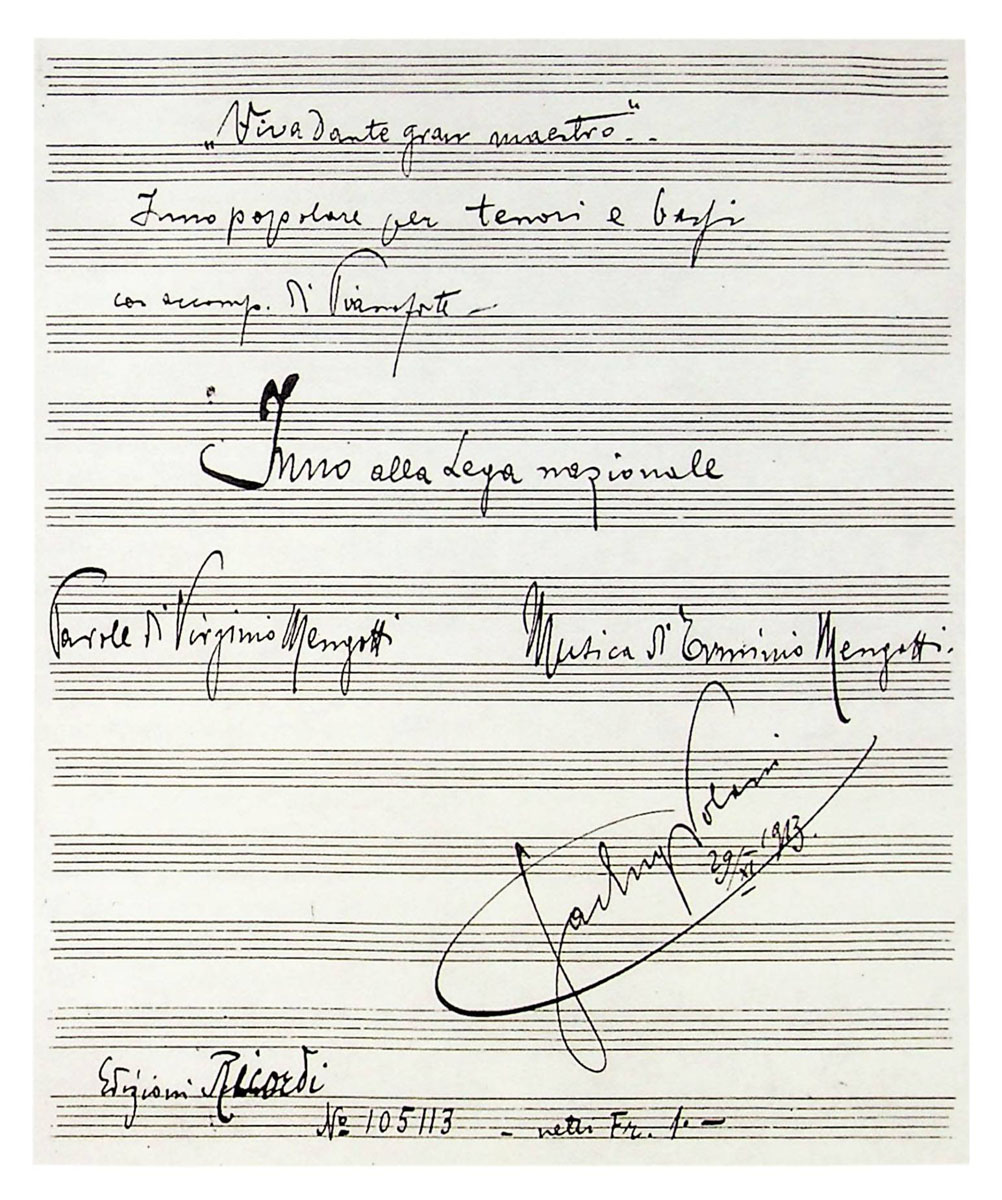 „Viva Dante gran maestro“..
Inno popolare per tenori e bassi
con accomp. di Pianoforte –
Inno alla Lega nazionale
Parole di Virginio Mengotti
Musica di Erminio Mengotti.
29/XI 1913.
Edizioni Ricordi
No 105113 – netti Fr. 1. –